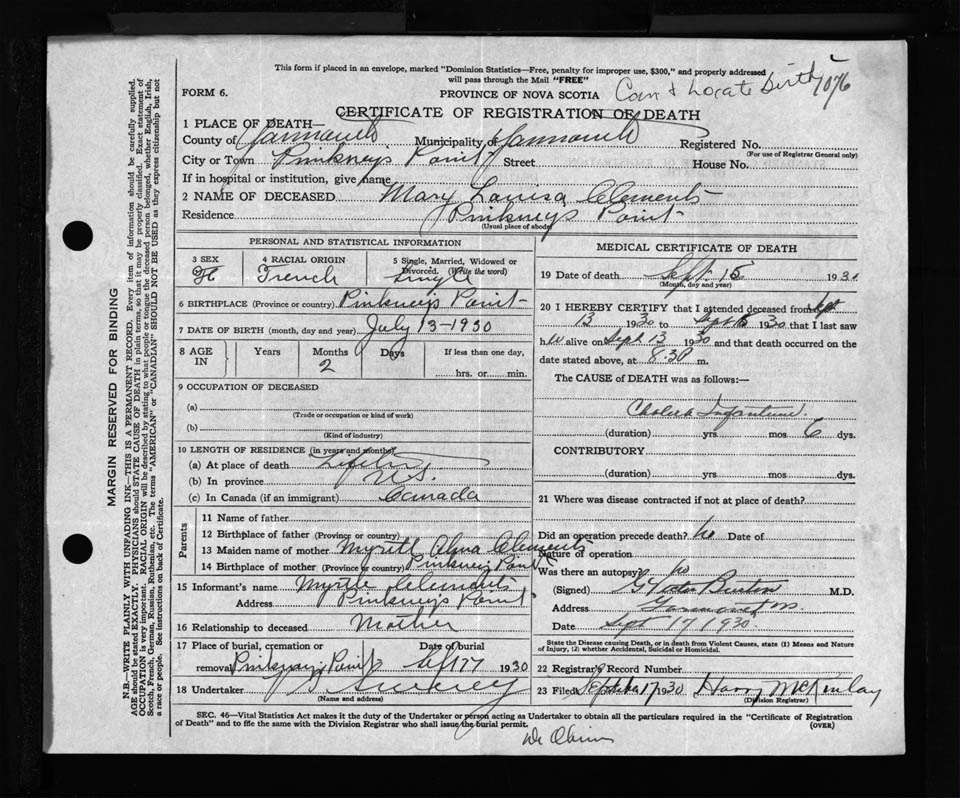 This form if placed in an envelope, marked "Dominion Statistics—Free, penalty for improper use, $300," and properly addressed
will pass through the Mail "FREE"
FORM 6.
PROVINCE OF NOVA SCOTIA
Can't Locate Birth 7076
CERTIFICATE OF REGISTRATION OF DEATH
1 PLACE OF DEATH—
County of Yarmouth Municipality of Yarmouth Registered No.
(For use of Registrar General only)
City or Town Pinkney's Point Street House No.
If in hospital or institution, give name
2 NAME OF DECEASED Mary Louisa Clements
Residence Pinkneys Point
(Usual place of abode)
PERSONAL AND STATISTICAL INFORMATION
3 SEX 4 RACIAL ORIGIN 5 Single, Married, Widowed or Divorced. (Write the word)
F French Single
6 BIRTHPLACE (Province or country) Pinkney's Point
7 DATE OF BIRTH (month, day and year) July 13-1930
8 AGE IN Years Months Days If less than one day,
2 hrs. or min.
9 OCCUPATION OF DECEASED
(a)
(Trade or occupation or kind of work)
(b)
(Kind of industry)
10 LENGTH OF RESIDENCE (in years and months)
(a) At place of death
(b) In province N.S.
(c) In Canada (if an immigrant) Canada
Parents
11 Name of father
12 Birthplace of father (Province or country)
13 Maiden name of mother Myrtle Alma Clements
14 Birthplace of mother (Province or country) Pinkneys Point
15 Informant's name Myrtle Clements
Address Pinkney's Point
16 Relationship to deceased Mother
17 Place of burial, cremation or removal Date of burial
Pinkneys Point 17 1930
18 Undertaker
(Name and address)
MEDICAL CERTIFICATE OF DEATH
19 Date of death Sept. 15 1930
(Month, day and year)
20 I HEREBY CERTIFY that I attended deceased from Sept
13 1930 to Sept 15 1930 that I last saw
h er alive on Sept 13 1930 and that death occurred on the
date stated above, at 8:30 m.
The CAUSE of DEATH was as follows:—
Cholera Infantum
(duration) yrs mos 6 dys.
CONTRIBUTORY
(duration) yrs mos dys.
21 Where was disease contracted if not at place of death?
Did an operation precede death? no Date of
Nature of operation
Was there an autopsy? no
(Signed) Burton M.D.
Address Yarmouth
Date Sept 17 1930
State the Disease causing Death, or in death from Violent Causes, state (1) Means and Nature
of Injury, (2) whether Accidental, Suicidal or Homicidal.
22 Registrar's Record Number
23 Filed September 17 1930 Harry McKinlay
(Division Registrar)
SEC. 46—Vital Statistics Act makes it the duty of the Undertaker or person acting as Undertaker to obtain all the particulars required in the "Certificate of Registration
of Death" and to file the same with the Division Registrar who shall issue the burial permit.
(OVER)
MARGIN RESERVED FOR BINDING
N.B.—WRITE PLAINLY WITH UNFADING INK—THIS IS A PERMANENT RECORD. Every item of information should be carefully supplied.
AGE should be stated EXACTLY. PHYSICIANS should STATE CAUSE OF DEATH in plain terms, so that it may be properly classified. Exact statement of
OCCUPATION is very important. RACIAL ORIGIN will be described by stating to what people or tongue the deceased person belonged, whether English, Irish,
Scotch, French, German, Russian, Ruthenian, etc. The terms "AMERICAN" or "CANADIAN" SHOULD NOT BE USED as they express citizenship but not
a race or people. See instructions on back of Certificate.